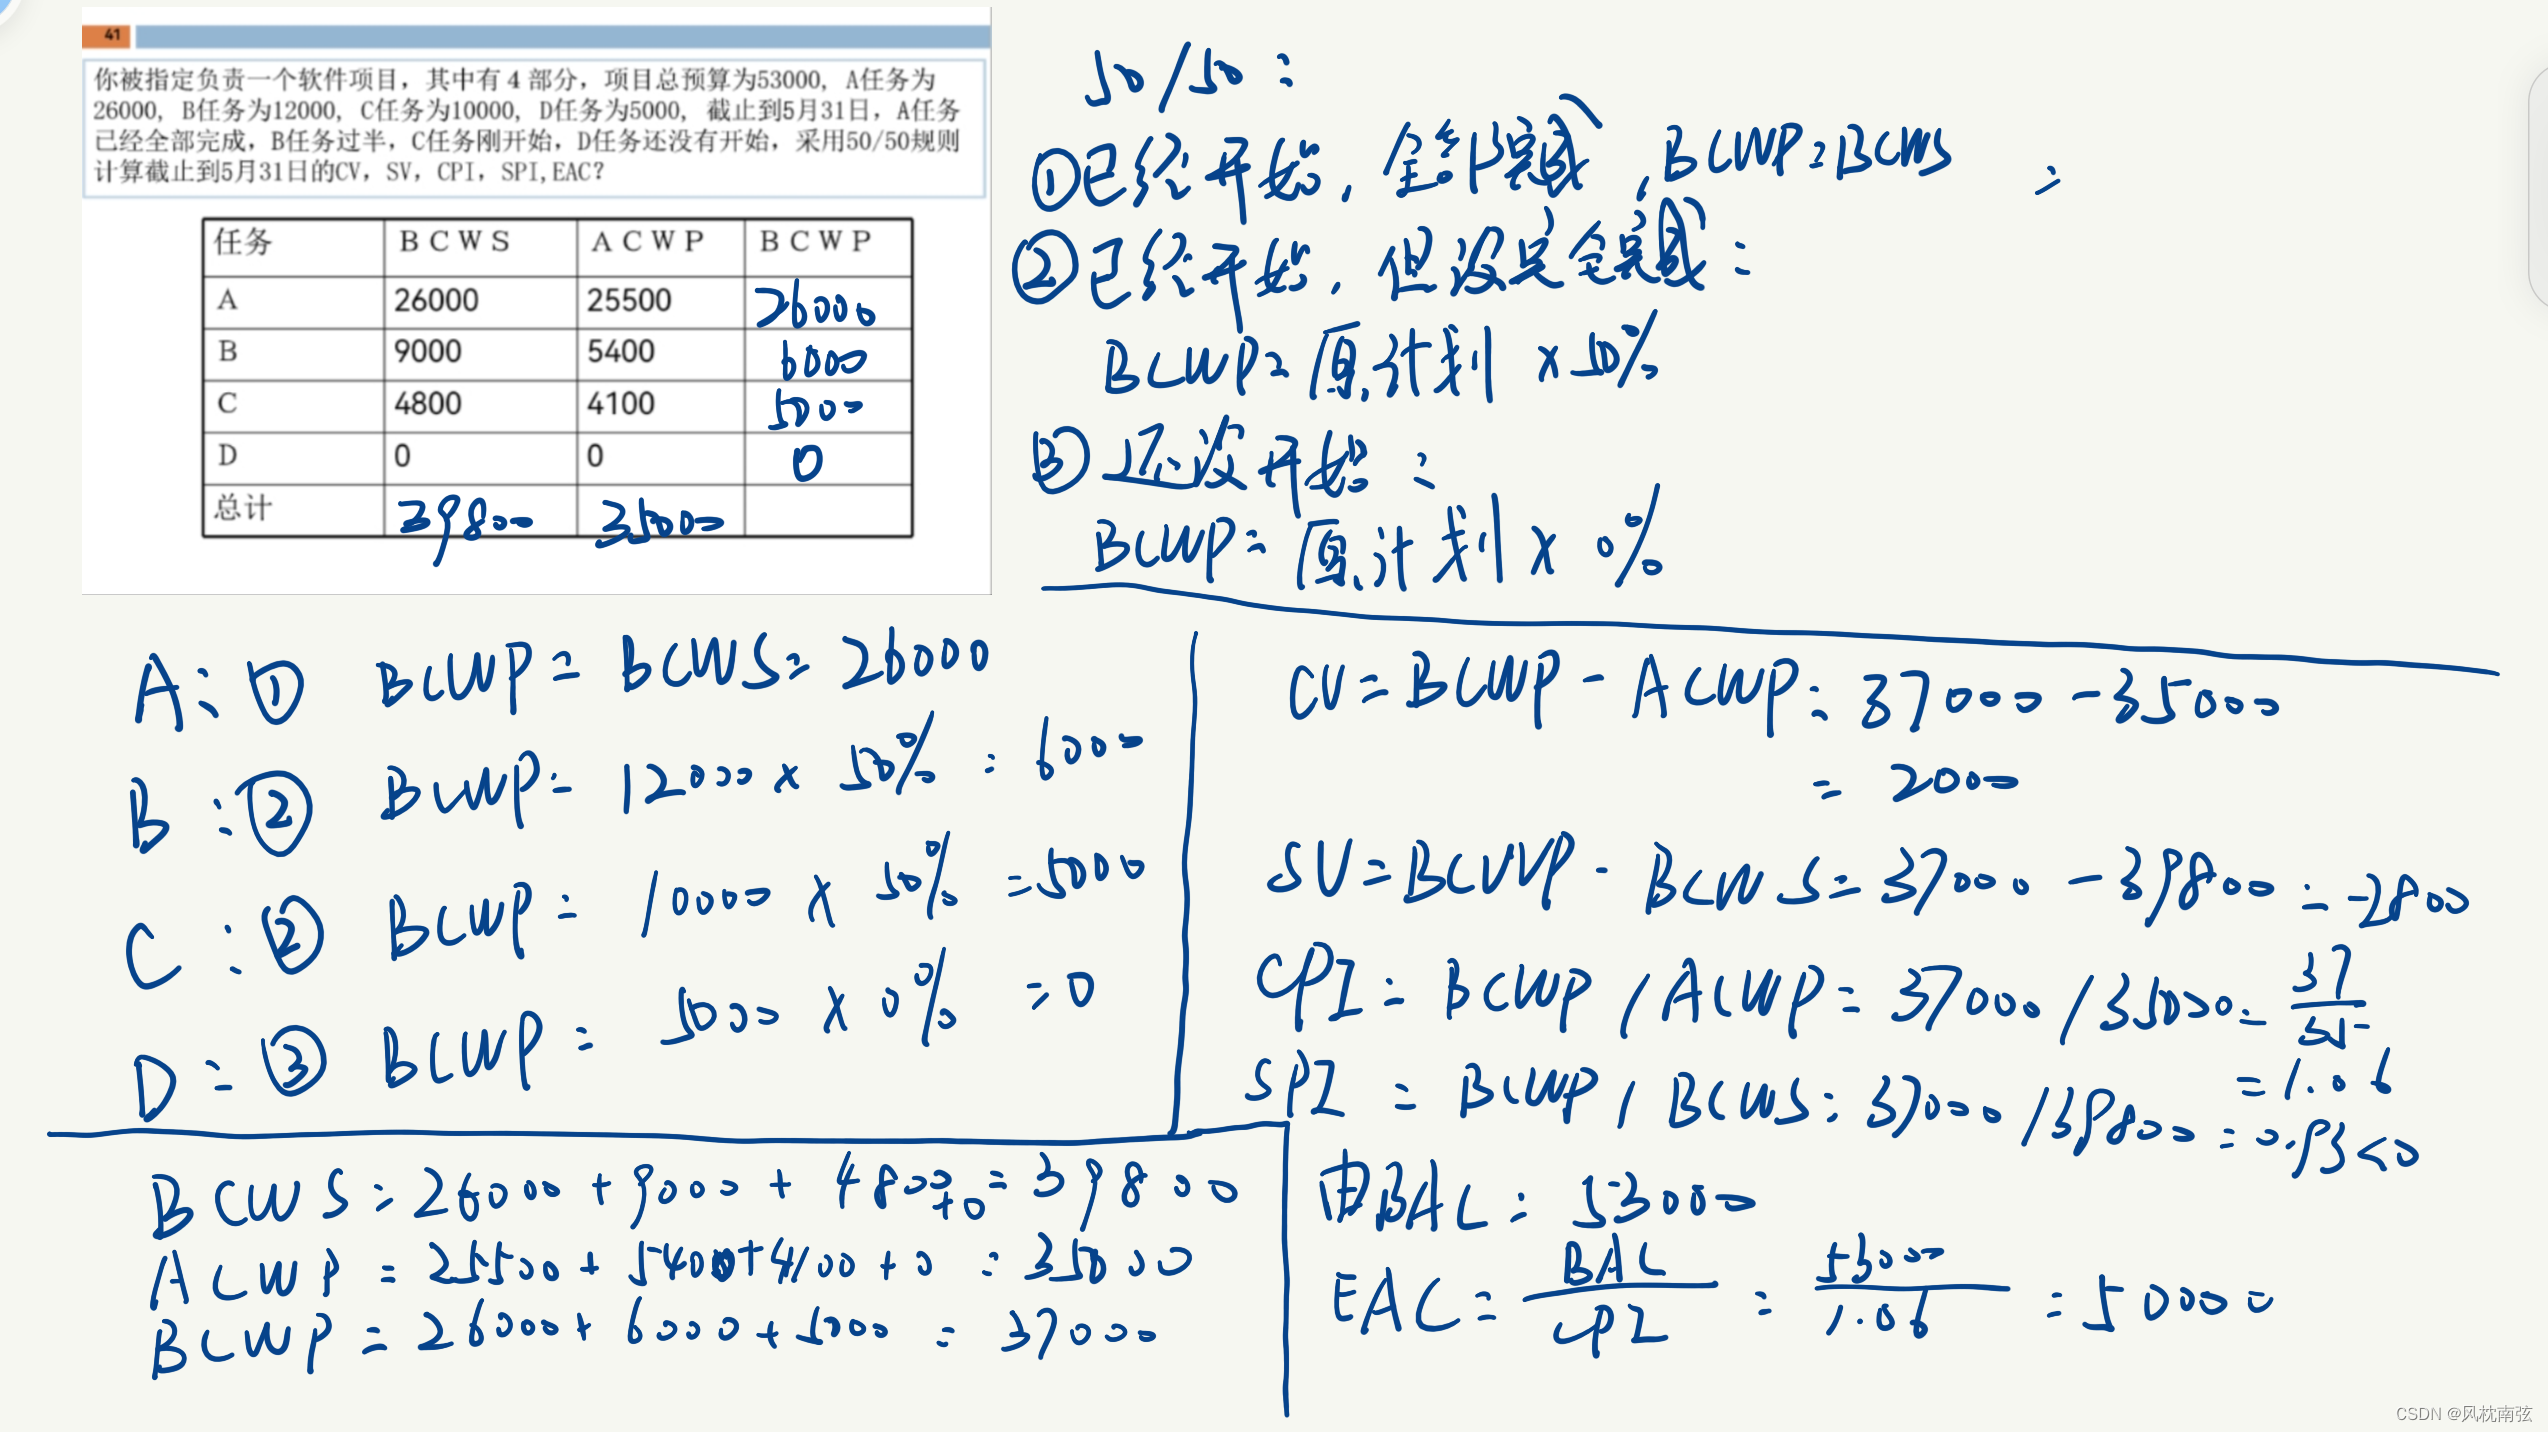 41
你被指定负责一个软件项目，其中有4部分，项目总预算为53000, A任务为
26000, B任务为12000, C任务为10000, D任务为5000, 截止到5月31日，A任务
已经全部完成，B任务过半，C任务刚开始，D任务还没有开始，采用50/50规则
计算截止到5月31日的CV，SV，CPI，SPI,EAC?
任务 BCWS ACWP BCWP
A 26000 25500 26000
B 9000 5400 6000
C 4800 4100 5000
D 0 0 0
总计 39800 35000
50/50:
①已经开始, 全部完成, BCWP=BCWS :
②已经开始, 但没完全完成:
BCWP=原计划 ×50%
③还没开始:
BCWP=原计划×0%
A: ① BCWP=BCWS=26000
B: ② BCWP=12000×50%=6000
C: ② BCWP=10000×50%=5000
D: ③ BCWP=5000×0%=0
BCWS=26000+9000+4800+0=39800
ACWP=25500+5400+4100+0=35000
BCWP=26000+6000+5000=37000
CV=BCWP-ACWP=37000-35000
=2000
SV=BCWP-BCWS=37000-39800=-2800
CPI=BCWP/ACWP=37000/35000=37/35
=1.06
SPI=BCWP/BCWS=37000/39800=0.93<0
由BAC=53000
EAC=BAC/CPI=53000/1.06=50000
CSDN @风枕南弦